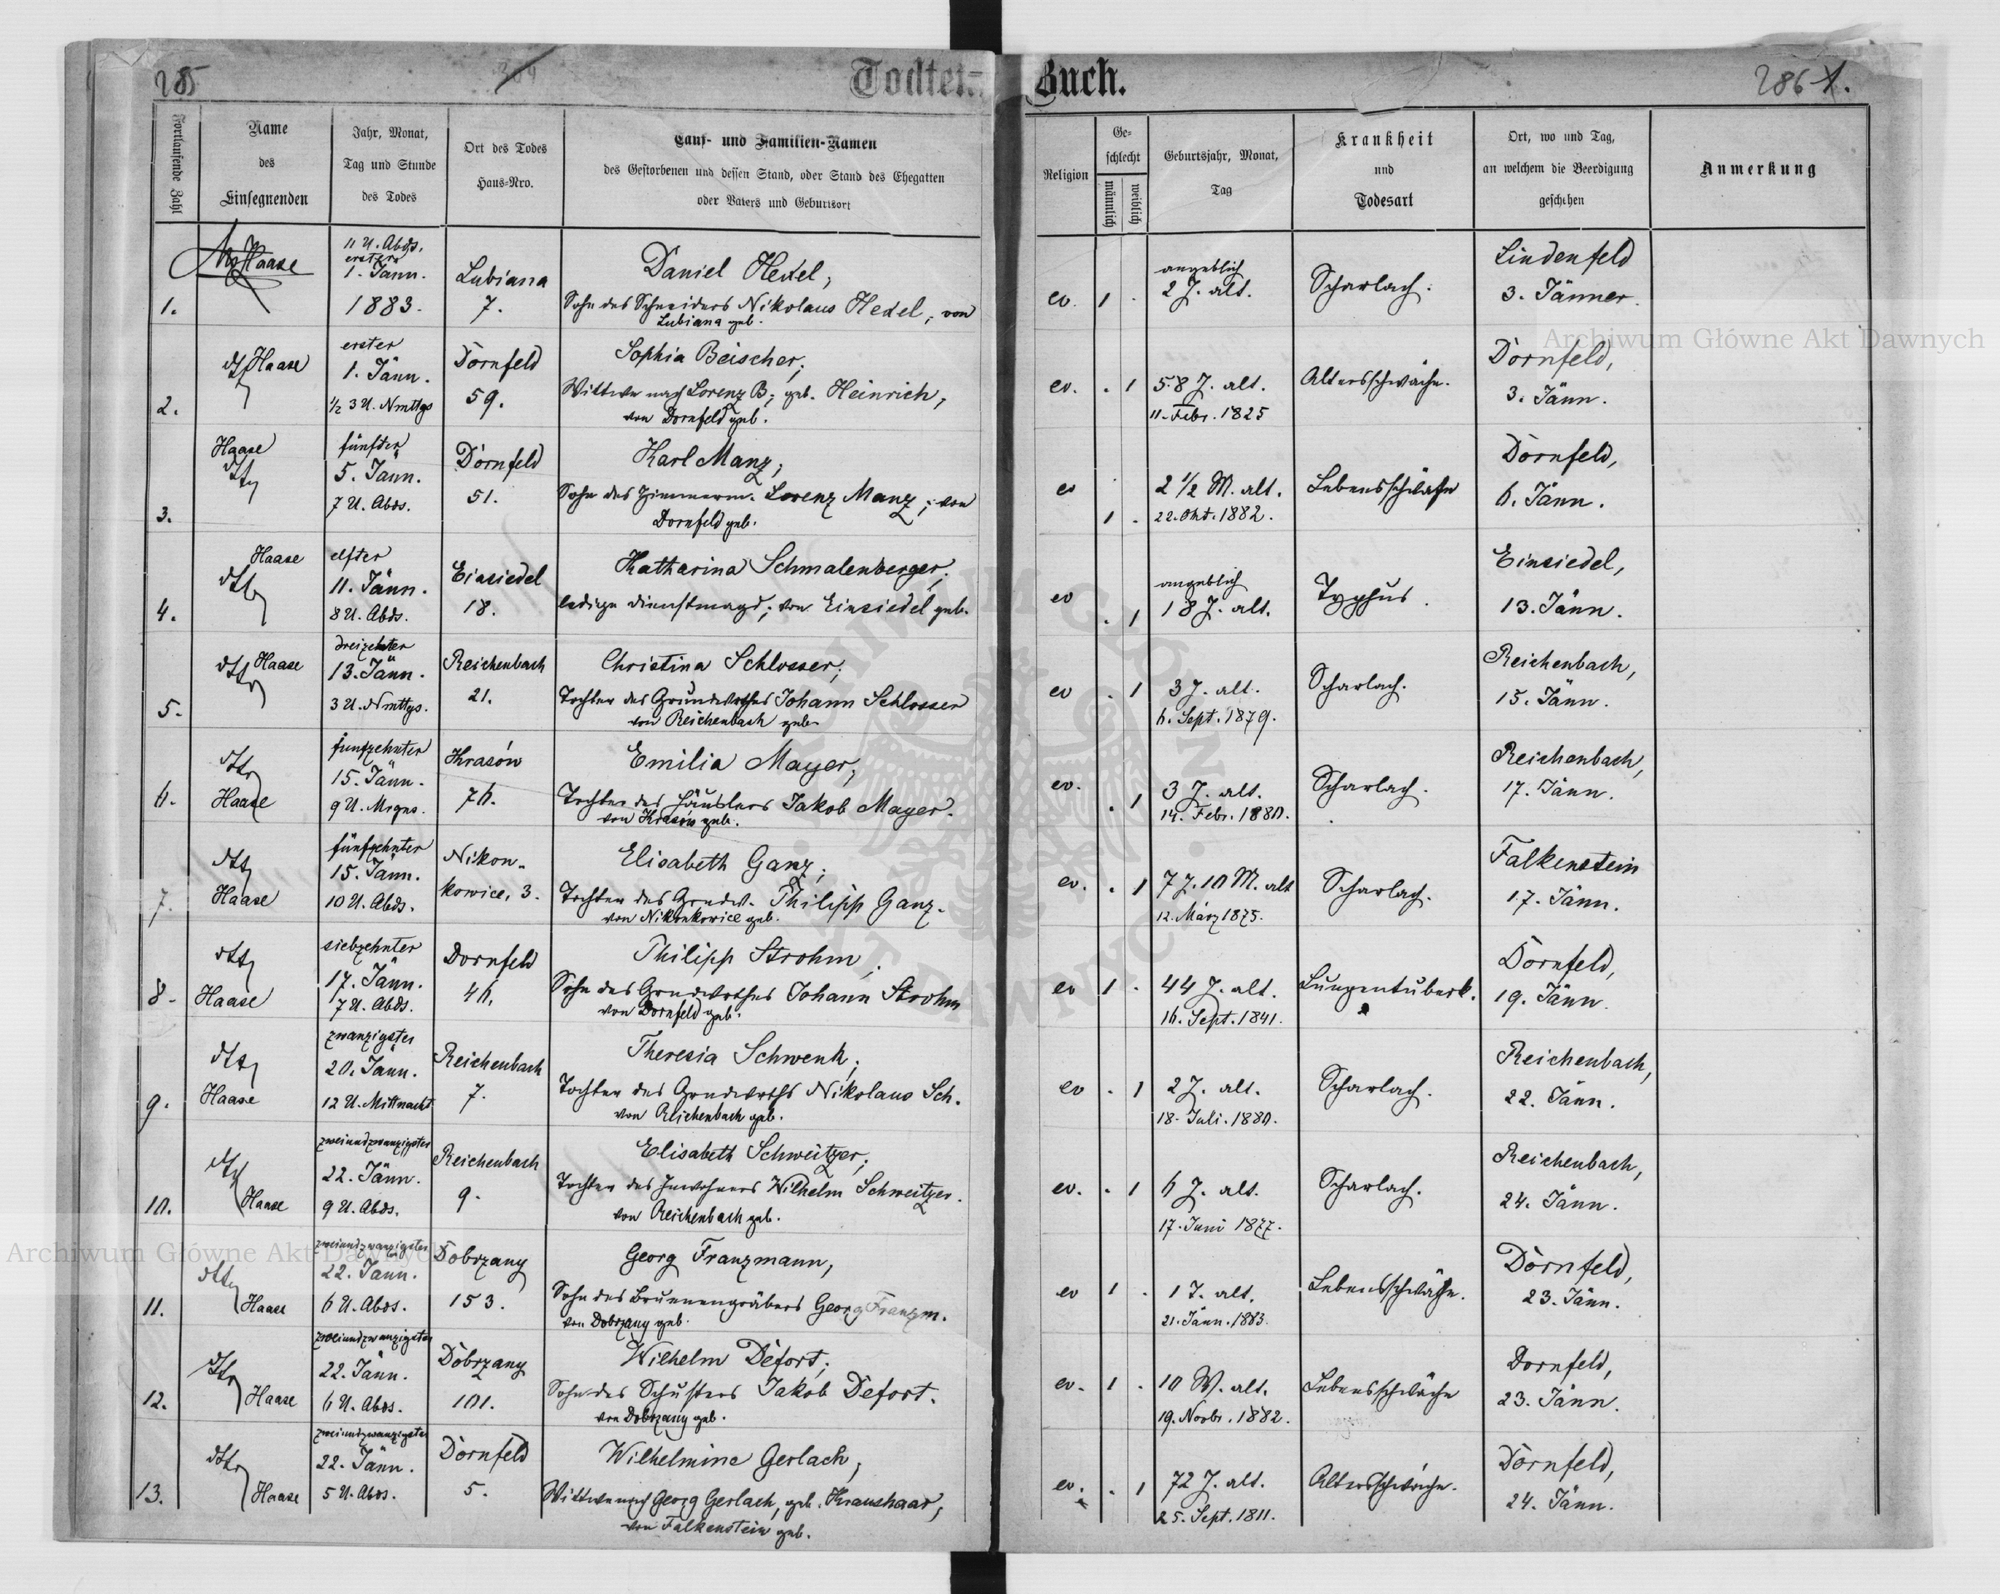 285
Todten-Buch.
286
1.
Fortlaufende Zahl
Name
des
Einsegnenden
Jahr, Monat,
Tag und Stunde
des Todes
Ort des Todes
Haus-Nro.
Tauf- und Familien-Namen
des Gestorbenen und dessen Stand, oder Stand des Ehegatten
oder Vaters und Geburtsort
Religion
Ge-
schlecht
männlich
weiblich
Geburtsjahr, Monat,
Tag
Krankheit
und
Todesart
Ort, wo und Tag,
an welchem die Beerdigung
geschehen
Anmerkung
1.
Haase
11 U. Abds.
erster
1. Jänn.
1883.
Lubiana
7.
Daniel Hexel,
Sohn des Schneiders Nikolaus Hexel, von
Lubiana geb.
ev. 1 .
angeblich
2 J. alt.
Scharlach.
Lindenfeld
3. Jänner.
2.
dtto Haase
erster
1. Jänn.
½ 3 U. Nmttgs
Dornfeld
59.
Sophia Beischer,
Wittwe nach Lorenz B, geb. Heinrich,
von Dornfeld geb.
ev. . 1
58 J. alt.
11. Febr. 1825
Altersschwäche.
Dornfeld,
3. Jänn.
3.
Haase
dtto
fünfter
5. Jänn.
7 U. Abds.
Dornfeld
51.
Karl Manz,
Sohn des Zimmerm. Lorenz Manz, von
Dornfeld geb.
ev
1 .
2 ½ M. alt.
22. Okt. 1882.
Lebensschwäche
Dornfeld,
6. Jänn.
4.
Haase
dtto
elfter
11. Jänn.
8 U. Abds.
Einsiedel
18.
Katharina Schmalenberger,
ledige Dienstmagd, von Einsiedel geb.
ev
. 1
angeblich
18 J. alt.
Typhus.
Einsiedel,
13. Jänn.
5.
dtto Haase
dreizehnter
13. Jänn.
3 U. Nmttgs.
Reichenbach
21.
Christina Schlosser,
Tochter des Grundwirthes Johann Schlosser
von Reichenbach geb.
ev . 1
3 J. alt.
6. Sept. 1879.
Scharlach.
Reichenbach,
15. Jänn.
6.
dtto
Haase
funfzehnter
15. Jänn.
9 U. Mrgns.
Krasów
76.
Emilia Mayer,
Tochter des Häuslers Jakob Mayer.
von Krasów geb.
ev.
. 1
3 J. alt.
14. Febr. 1880.
Scharlach.
Reichenbach,
17. Jänn.
7.
dtto
Haase
fünfzehnter
15. Jänn.
10 U. Abds.
Nikon-
kowice, 3.
Elisabeth Ganz,
Tochter des Grndw. Philipp Ganz.
von Nikonkowice geb.
ev. . 1
7 J. 10 M. alt
12. März 1875.
Scharlach.
Falkenstein
17. Jänn.
8.
dtto
Haase
siebzehnter
17. Jänn.
7 U. Abds.
Dornfeld
46.
Philipp Strohm,
Sohn des Grndwirthes Johann Strohm
von Dornfeld geb.
ev 1 .
44 J. alt.
16. Sept. 1841.
Lungentuberk.
Dornfeld,
19. Jänn.
9.
dtto
Haase
zwanzigster
20. Jänn.
12 U. Mittnacht
Reichenbach
7.
Theresia Schwenk,
Tochter des Grndwirths Nikolaus Sch.
von Reichenbach geb.
ev . 1
2 J. alt.
18. Juli. 1880.
Scharlach.
Reichenbach,
22. Jänn.
10.
dtto
Haase
zweiundzwanzigster
22. Jänn.
9 U. Abds.
Reichenbach
9.
Elisabeth Schweitzer,
Tochter des Inwohners Wilhelm Schweitzer.
von Reichenbach geb.
ev. . 1
6 J. alt.
17. Juni 1877.
Scharlach.
Reichenbach,
24. Jänn.
11.
dtto
Haase
zweiundzwanzigster
22. Jänn.
6 U. Abds.
Dobrzany
153.
Georg Franzmann,
Sohn des Brunnengräbers Georg Franzm.
von Dobrzany geb.
ev 1 .
1 T. alt.
21. Jänn. 1883.
Lebensschwäche.
Dornfeld,
23. Jänn.
12.
dtto
Haase
zweiundzwanzigster
22. Jänn.
6 U. Abds.
Dobrzany
101.
Wilhelm Defort,
Sohn des Schusters Jakob Defort.
von Dobrzany geb.
ev. 1 .
10 W. alt.
19. Novbr. 1882.
Lebensschwäche
Dornfeld,
23. Jänn.
13.
dtto
Haase
zweiundzwanzigster
22. Jänn.
5 U. Abds.
Dornfeld
5.
Wilhelmine Gerlach,
Wittwe nach Georg Gerlach, geb. Kraushaar,
von Falkenstein geb.
ev. . 1
72 J. alt.
25. Sept. 1811.
Altersschwäche.
Dornfeld,
24. Jänn.
Archiwum Główne Akt Dawnych
Archiwum Główne Akt Dawnych